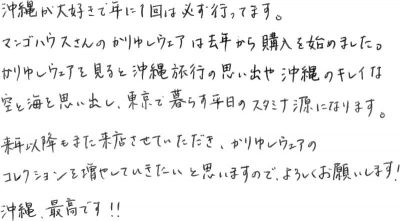 沖縄が大好きで年に1回は必ず行ってます。
マンゴハウスさんのかりゆしウェアは去年から購入を始めました。
かりゆしウェアを見ると沖縄旅行の思い出や沖縄のキレイな
空と海を思い出し、東京で暮らす平日のスタミナ源になります。
来年以降もまた来店させていただき、かりゆしウェアの
コレクションを増やしていきたいと思いますので、よろしくお願いします!
沖縄、最高です!!